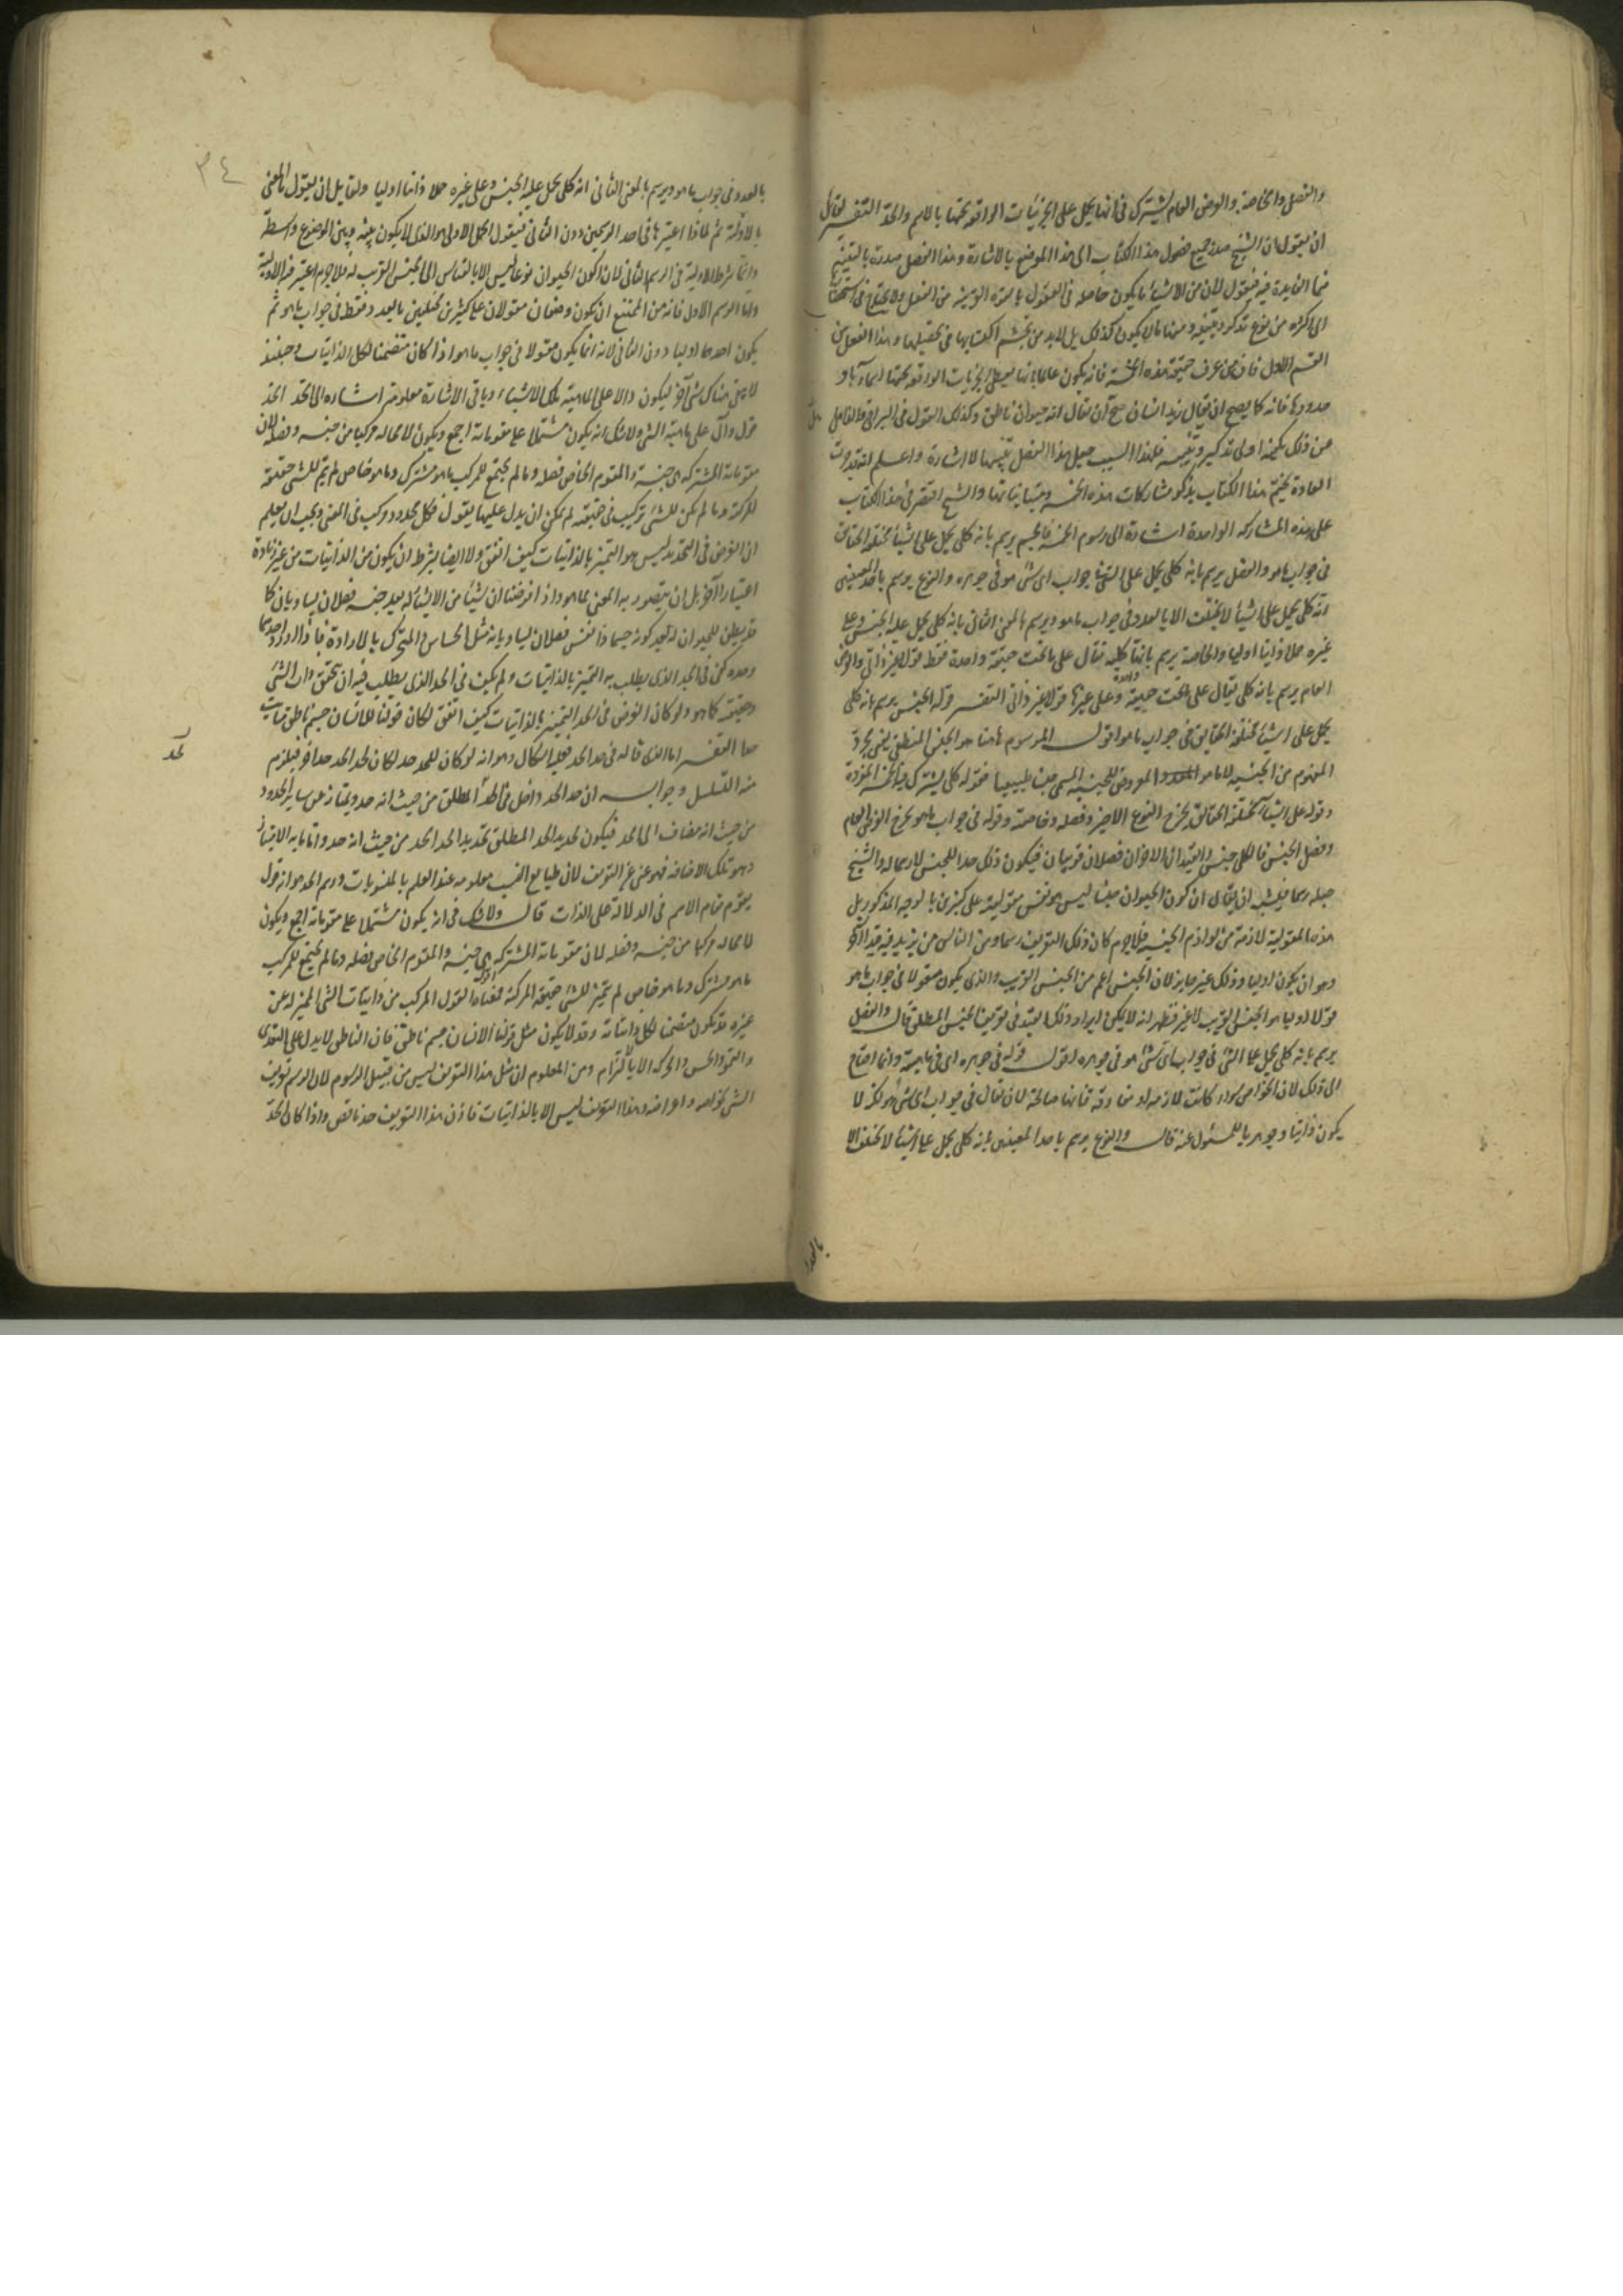 والفصل والخاصة والعرض العام يشترك في انها يحمل على الجزئيات الواقعة تحتها بالاسم والحد التفسير لقائل
ان يقول ان الشيخ صدر جميع فصول هذا الكتاب الى هذا الموضع بالاشارة وهذا الفصل صدره بالتنبيه
فما الفايدة فيه فنقول لان من الاشياء ما يكون حاصله في العقول بالقوة القريبة من الفعل ولا يحتاج في استحضارها
الى اكثر من نوع تذكر وتنبيه ومنها ما لا يكون كذلك بل لابد من تجشم اكتسابها في تحصيلها وهذا الفصل من
القسم الاول فان من عرف حقيقة هذه الخمسة فانه يكون عالما بانها يحمل على الجزئيات الواقعة تحتها اسماؤها و
حدودها فانه كما يصح ان يقال زيد انسان صح ان يقال انه حيوان ناطق وكذلك القول في البواقي والغافل
عن ذلك يكفيه ادنى تذكير وتنبيه فلهذا السبب جعل هذا الفصل تنبيها لا اشارة واعلم انه قد جرت
العادة بختم هذا الكتاب بذكر مشاركات هذه الخمسة ومبايناتها والشيخ اقتصر في هذا الكتاب
على هذه المشاركة الواحدة اشارة الى رسوم الخمسة فالجنس يرسم بانه كلي يحمل على اشياء مختلفة الحقائق
في جواب ما هو والفصل يرسم بانه كلي يحمل على الشئ في جواب اي شئ هو في جوهره والنوع يرسم باحد المعنيين
انه كلي يحمل على اشياء لا يختلف الا بالعدد في جواب ما هو ويرسم بالمعنى الثاني بانه كلي يحمل عليه الجنس وعلى
غيره حملا ذاتيا اوليا والخاصة يرسم بانها كلية تقال على ما تحت حقيقة واحدة فقط قولا غير ذاتي والعرض
العام يرسم بانه كلي يقال على ما تحت حقيقة واحدة وعلى غيرها قولا غير ذاتي التفسير قوله الجنس يرسم بانه كلي
يحمل على اشياء مختلفة الحقايق في جواب ما هو اقول المرسوم هاهنا هو الجنس المنطقي يعني مجرد
المفهوم من الجنسية لا ما هو المعروض للجنسية المسمى جنسا طبيعيا فقوله كلي يشترك فيه الخمسة المفردة
وقوله على اشياء مختلفة الحقائق يخرج النوع الاخير وفصله وخاصته وقوله في جواب ما هو يخرج العرض العام
وفصل الجنس فالكلي جنس والقيدان الاخران فصلان قريبان فيكون ذلك حدا للجنس لا رسما له والشيخ
جعله رسما فيشبه ان يقال ان كون الحيوان جنسا ليس هو نفس مقوليته على كثيرين بالوجه المذكور بل
هذه المقولية لازمة من لوازم الجنسية فلا جرم كان ذلك التعريف رسما ومن الناس من يزيد فيه قيدا آخر
وهو ان يكون اوليا وذلك غير جايز لان الجنس اعم من الجنس القريب والذي يكون مقولا في جواب ما هو
قولا اوليا هو الجنس القريب لا غير فظهر انه لا يمكن ايراد ذلك القيد في تعريف الجنس المطلق قال والفصل
يرسم بانه كلي يحمل على الشئ في جواب اي شئ هو في جوهره اقول قوله في جوهره اي في ماهيته وانما احتاج
الى ذلك لان الخواص سواء كانت لازمة او مفارقة فانها صالحة لان يقال في جواب اي شئ هو لكنه لا
يكون ذاتيا وجوهريا للمسئول عنه قال والنوع يرسم باحد المعنيين بانه كلي يحمل على اشياء لا يختلف الا
بالعدد
٣٤
بالعدد في جواب ما هو ويرسم بالمعنى الثاني انه كلي يحمل عليه الجنس وعلى غيره حملا ذاتيا اوليا ولقايل ان يقول ما المعنى
بالاولية ثم لماذا اعتبرها في احد الرسمين دون الثاني فنقول الحمل الاولى هو الذي لا يكون بينه وبين الموضوع واسطة
وانما شرط الاولية في الرسم الثاني لان كون الحيوان نوعا ليس الا بالقياس الى الجنس القريب له فلا جرم اعتبر فيه الاولية
واما الرسم الاول فانه من الممتنع ان يكون وصفان مقولان على كثيرين مختلفين بالعدد فقط في جواب ما هو ثم
يكون احدهما اوليا دون الثاني لانه انما يكون مقولا في جواب ما هو اذا كان متضمنا لكل الذاتيات وحينئذ
لا يبقى هناك شئ آخر ليكون دالا على ماهية تلك الاشياء وباقي الاشارة معلوم اشارة الى الحد الحد
قول دال على ماهية الشئ ولا شك انه يكون مشتملا على مقوماته اجمع ويكون لا محالة مركبا من جنسه وفصله لان
مقوماته المشتركة هي جنسه والمقوم الخاص فصله وما لم يجتمع للمركب ما هو مشترك وما هو خاص لم يتم للشئ حقيقته
المركبة وما لم يكن للشئ تركيب في حقيقته لم يمكن ان يدل عليها بقول فكل محدود مركب في المعنى ويجب ان يعلم
ان الغرض في التحديد ليس هو التمييز بالذاتيات كيف اتفق ولا ايضا بشرط ان يكون من الذاتيات من غير زيادة
اعتبار آخر بل ان يتصور به المعنى كما هو واذا فرضنا ان شيئا من الاشياء له بعد جنسه فصلان يساويانه كما
قد يظن للحيوان انه بعد كونه جسما ذا نفس فصلان يساويانه مثل الحساس والمتحرك بالارادة فاذا اورد احدهما
وحده كفى في الحد الذي يطلب به التمييز بالذاتيات ولم يكف في الحد الذي يطلب فيه ان يتحقق ذات الشئ
وحقيقته كما هو ولو كان الغرض في الحد التمييز بالذاتيات كيف اتفق لكان قولنا للانسان جسم ناطق مائت
حدا التفسير اما الذي قاله في حد الحد فعليه اشكال وهو انه لو كان للحد حد لكان لحد الحد حدا آخر فيلزم
لحد
منه التسلسل وجوابه ان حد الحد داخل في الحد المطلق من حيث انه حد ويمتاز عن ساير الحدود
من حيث انه مضاف الى الحد فيكون تحديد الحد المطلق تحديدا لحد الحد من حيث انه حد واما ما به الامتياز
وهو تلك الاضافة فهو غني عن التعريف لان طبايع النسب معلومة عند العلم بالمنسوبات ورسم الحد هو انه قول
يقوم مقام الاسم في الدلالة على الذات قال ولا شك في انه يكون مشتملا على مقوماته اجمع ويكون
لا محالة مركبا من جنسه وفصله لان مقوماته المشتركة هي جنسه والمقوم الخاص فصله وما لم يجتمع للمركب
ما هو مشترك وما هو خاص لم يتم للشئ حقيقته المركبة اقول القول المركب من ذاتيات الشئ المميز له عن
غيره قد يكون متضمنا لكل ذاتياته وقد لا يكون مثل قولنا الانسان جسم ناطق فان الناطق لا يدل على التغذي
والنمو والحس والحركة الا بالالتزام ومن المعلوم ان مثل هذا التعريف ليس من قبيل الرسوم لان الرسم تعريف
الشئ بخواصه واعراضه وهذا التعريف ليس الا بالذاتيات فاذن هذا التعريف حد ناقص واذا كان الحد